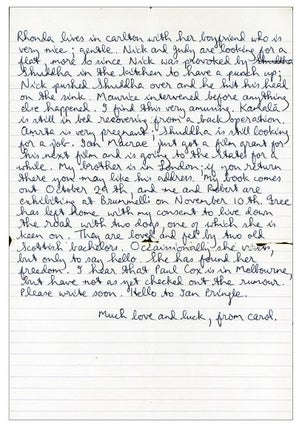 Rhonda lives in Carlton with her boyfriend who is
very nice; gentle. Nick and Judy are looking for a
flat, more so since Nick was provoked by
Shuddha in the kitchen to have a punch up;
Nick pushed Shuddha over and he hit his head
on the sink. Maurice intervened before anything
else happened. I find this very amusing. Kamala
is still in bed recovering from a back operation.
Amrita is very pregnant. Shuddha is still looking
for a job. Ian Macrae just got a film grant for
his next film and is going to the States for a
while. My brother is in London; is you return
there you may like his address. My book comes
out October 29th and me and Robert are
exhibiting at Brummels on November 10th. Free
has left home with my consent to live down
the road with two dogs, one of which she is
keen on. They are loved and fed by two old
Scottish bachelors. Occassionally she visits,
but only to say hello. She has found her
freedom. I hear that Paul Cox is in Melbourne,
but have not as yet checked out the rumour.
Please write soon. Hello to Jan Pringle.
Much love and luck, from Carol.